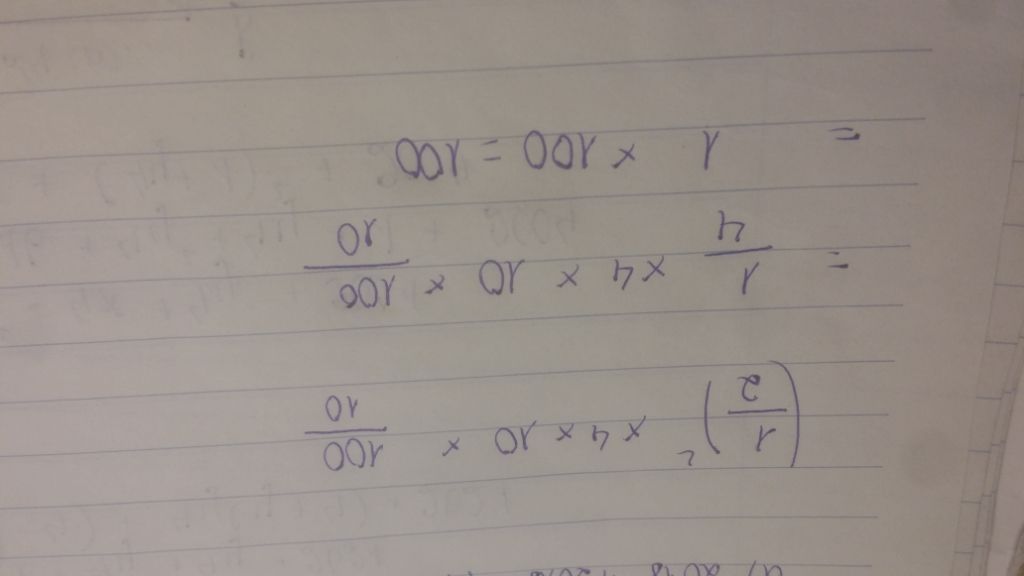 (1/2)² × 4 × 10 × 100/10
= 1/4 × 4 × 10 × 100/10
= 1 × 100 = 100